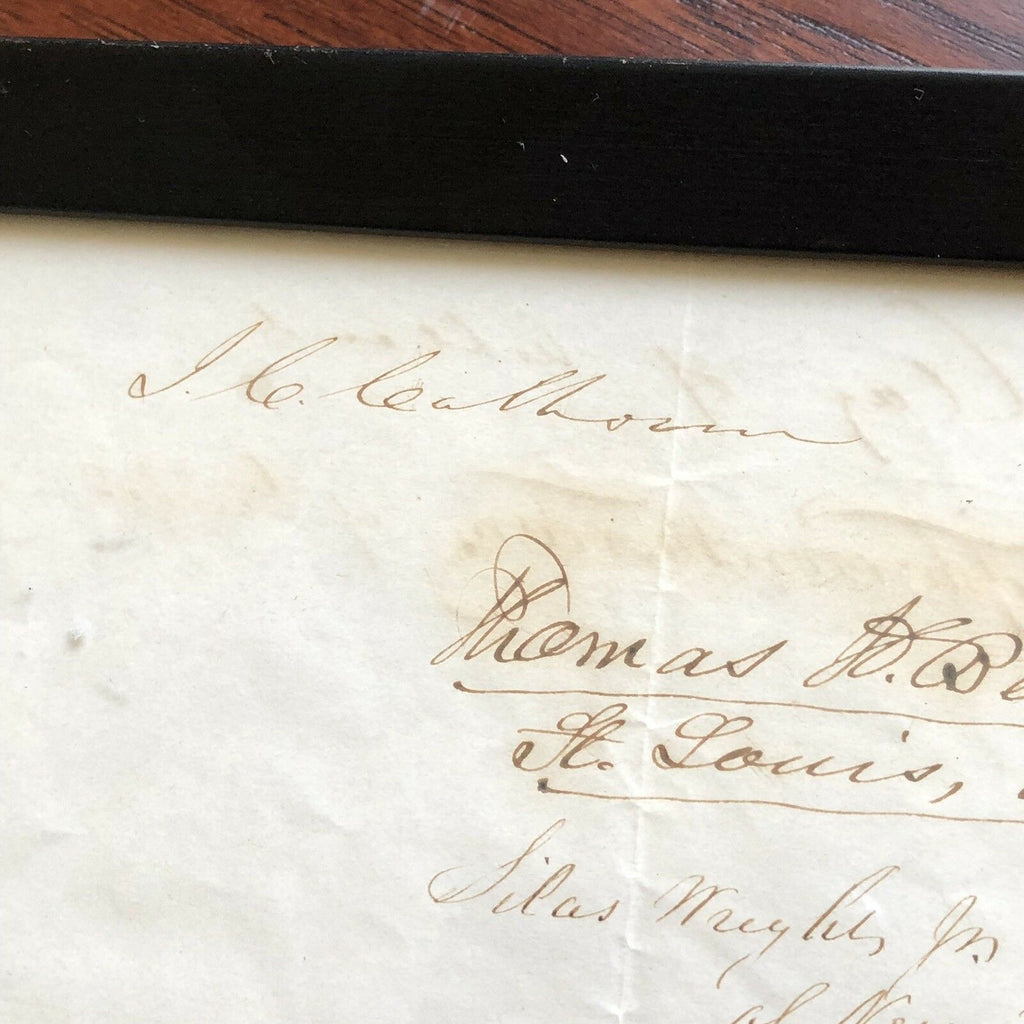 J. C. Calhoun
Thomas H. Be
St. Louis,
Silas Wright Jr.
of New